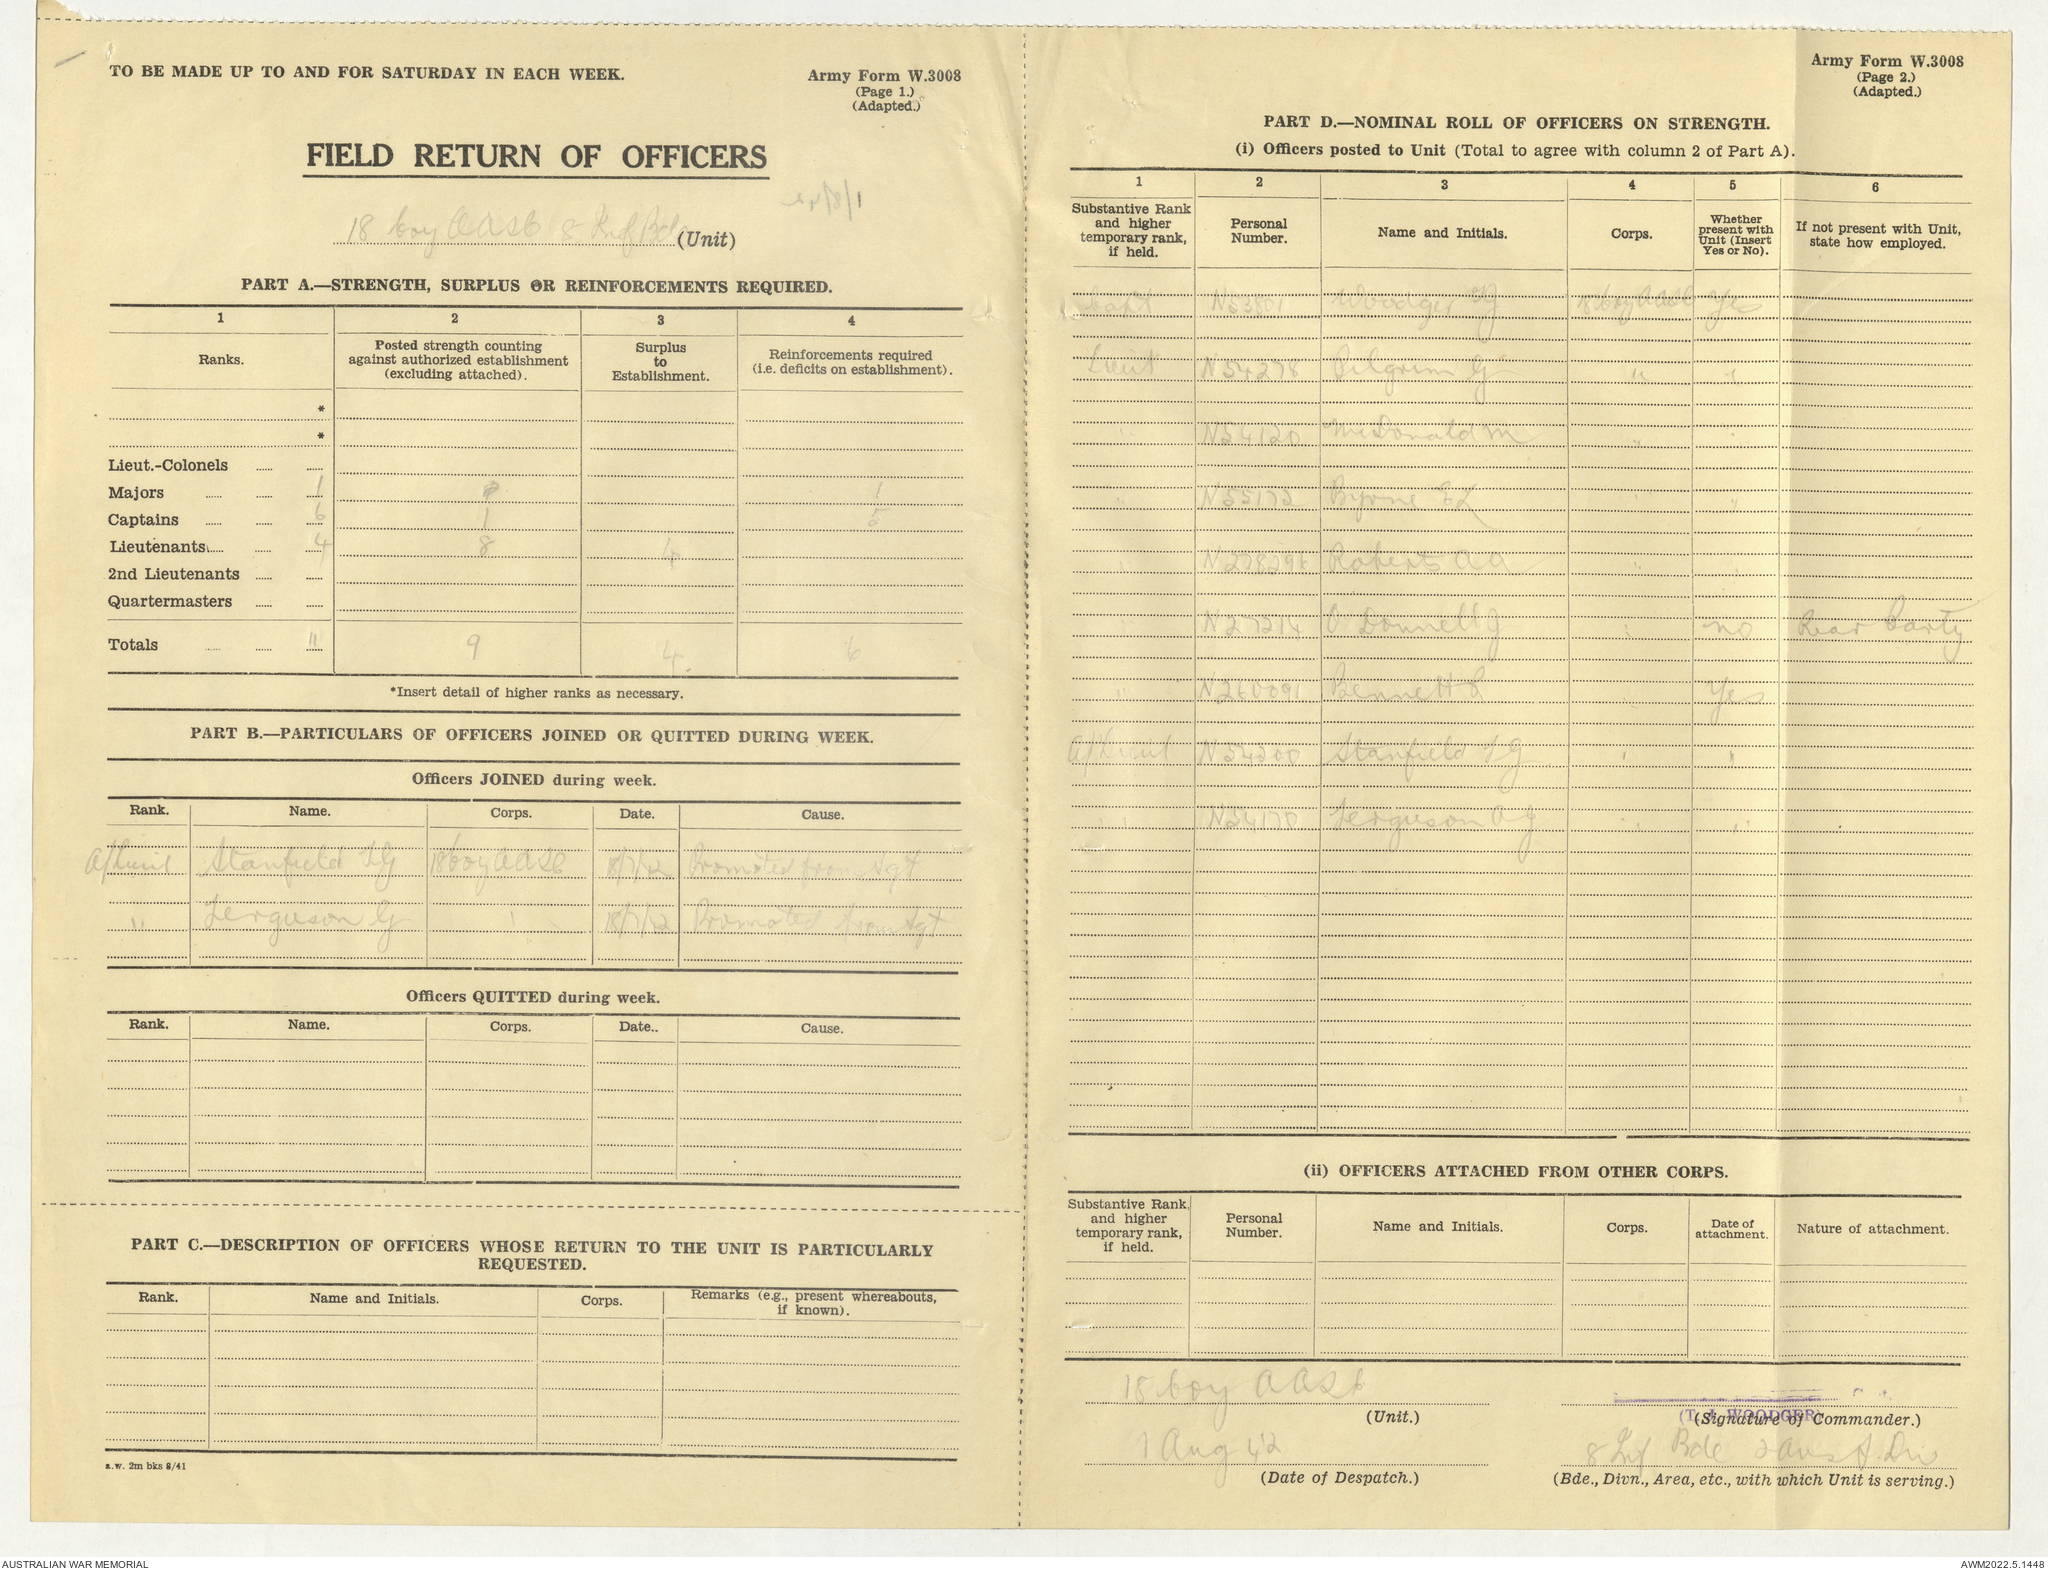 TO BE MADE UP TO AND FOR SATURDAY IN EACH WEEK.
Army Form W.3008
(Page 1.)
(Adapted.)
FIELD RETURN OF OFFICERS
1/8/42
18 Coy AASC 8 Inf Bde (Unit)
PART A.—STRENGTH, SURPLUS OR REINFORCEMENTS REQUIRED.
1 2 3 4
Ranks. Posted strength counting against authorized establishment (excluding attached). Surplus to Establishment. Reinforcements required (i.e. deficits on establishment).
*
*
Lieut.-Colonels
Majors 1 1
Captains 6 1 5
Lieutenants 4 8 4
2nd Lieutenants
Quartermasters
Totals 11 9 4 6
*Insert detail of higher ranks as necessary.
PART B.—PARTICULARS OF OFFICERS JOINED OR QUITTED DURING WEEK.
Officers JOINED during week.
Rank. Name. Corps. Date. Cause.
A/Lieut Stanfield LG 18 Coy AASC 18/7/42 Promoted from Sgt
" Ferguson G " 18/7/42 Promoted from Sgt
Officers QUITTED during week.
Rank. Name. Corps. Date.. Cause.
PART C.—DESCRIPTION OF OFFICERS WHOSE RETURN TO THE UNIT IS PARTICULARLY
REQUESTED.
Rank. Name and Initials. Corps. Remarks (e.g., present whereabouts, if known).
a.w. 2m bks 8/41
Army Form W.3008
(Page 2.)
(Adapted.)
PART D.—NOMINAL ROLL OF OFFICERS ON STRENGTH.
(i) Officers posted to Unit (Total to agree with column 2 of Part A).
1 2 3 4 5 6
Substantive Rank and higher temporary rank, if held. Personal Number. Name and Initials. Corps. Whether present with Unit (Insert Yes or No). If not present with Unit, state how employed.
Capt N53801 Woodger TJ 18 Coy AASC Yes
Lieut N54278 Pilgrim G " "
" N54120 McDonald M " "
" N55172 Byrne EL " "
" N278291 Roberts AA " "
" N27214 O'Donnell J " no Rear Party
" N260091 Bennett L " Yes
A/Lieut N54200 Stanfield LG " "
" N24170 Ferguson AG " "
(ii) OFFICERS ATTACHED FROM OTHER CORPS.
Substantive Rank, and higher temporary rank, if held. Personal Number. Name and Initials. Corps. Date of attachment. Nature of attachment.
18 Coy AASC
(Unit.)
(T. J. WOODGER)
(Signature of Commander.)
1 Aug 42
(Date of Despatch.)
8 Inf Bde 2 Aust Div
(Bde., Divn., Area, etc., with which Unit is serving.)
AUSTRALIAN WAR MEMORIAL
AWM2022.5.1448